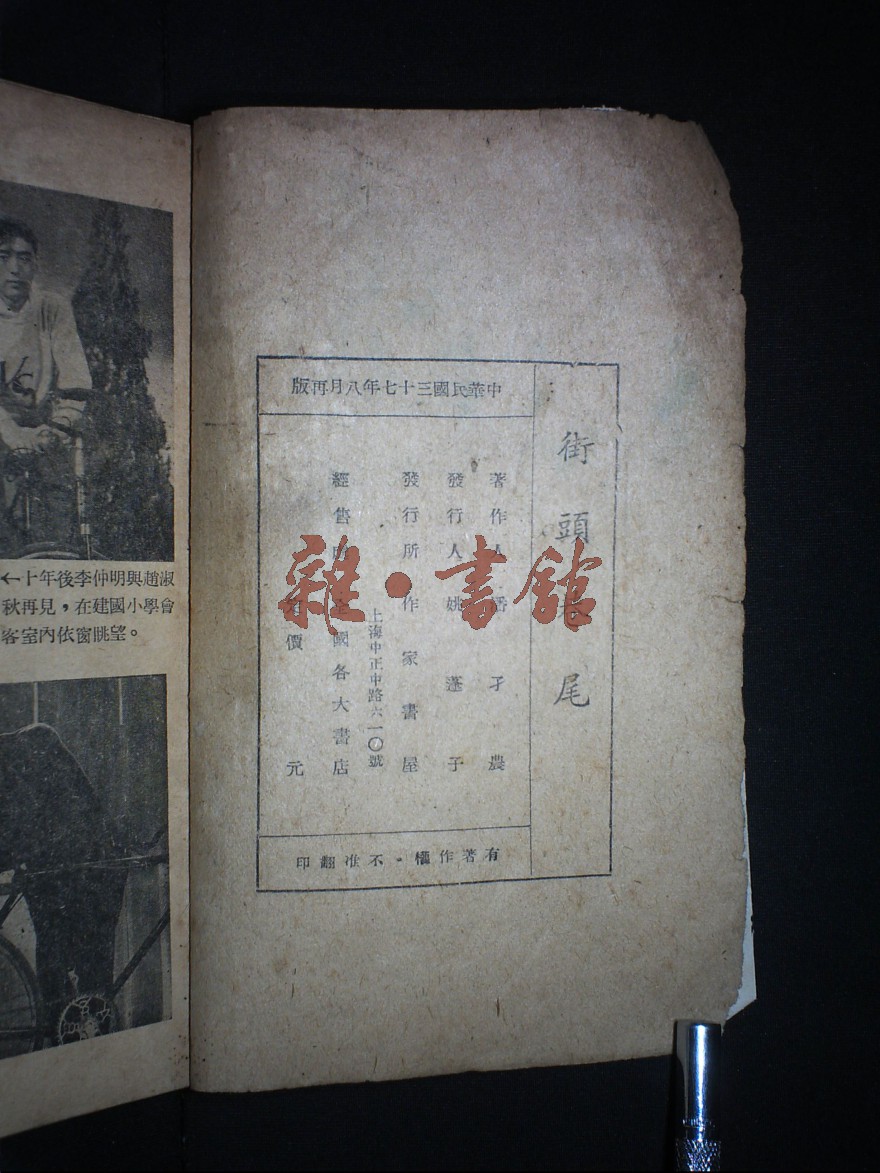 街頭巷尾
中華民國三十七年八月再版
著作人 潘孑農
發行人 姚蓬子
發行所 作家書屋
上海中正中路六一〇號
經售 全國各大書店
定價 元
有著作權・不准翻印
←十年後李仲明與趙淑
秋再見，在建國小學會
客室內依窗眺望。
雜・書館